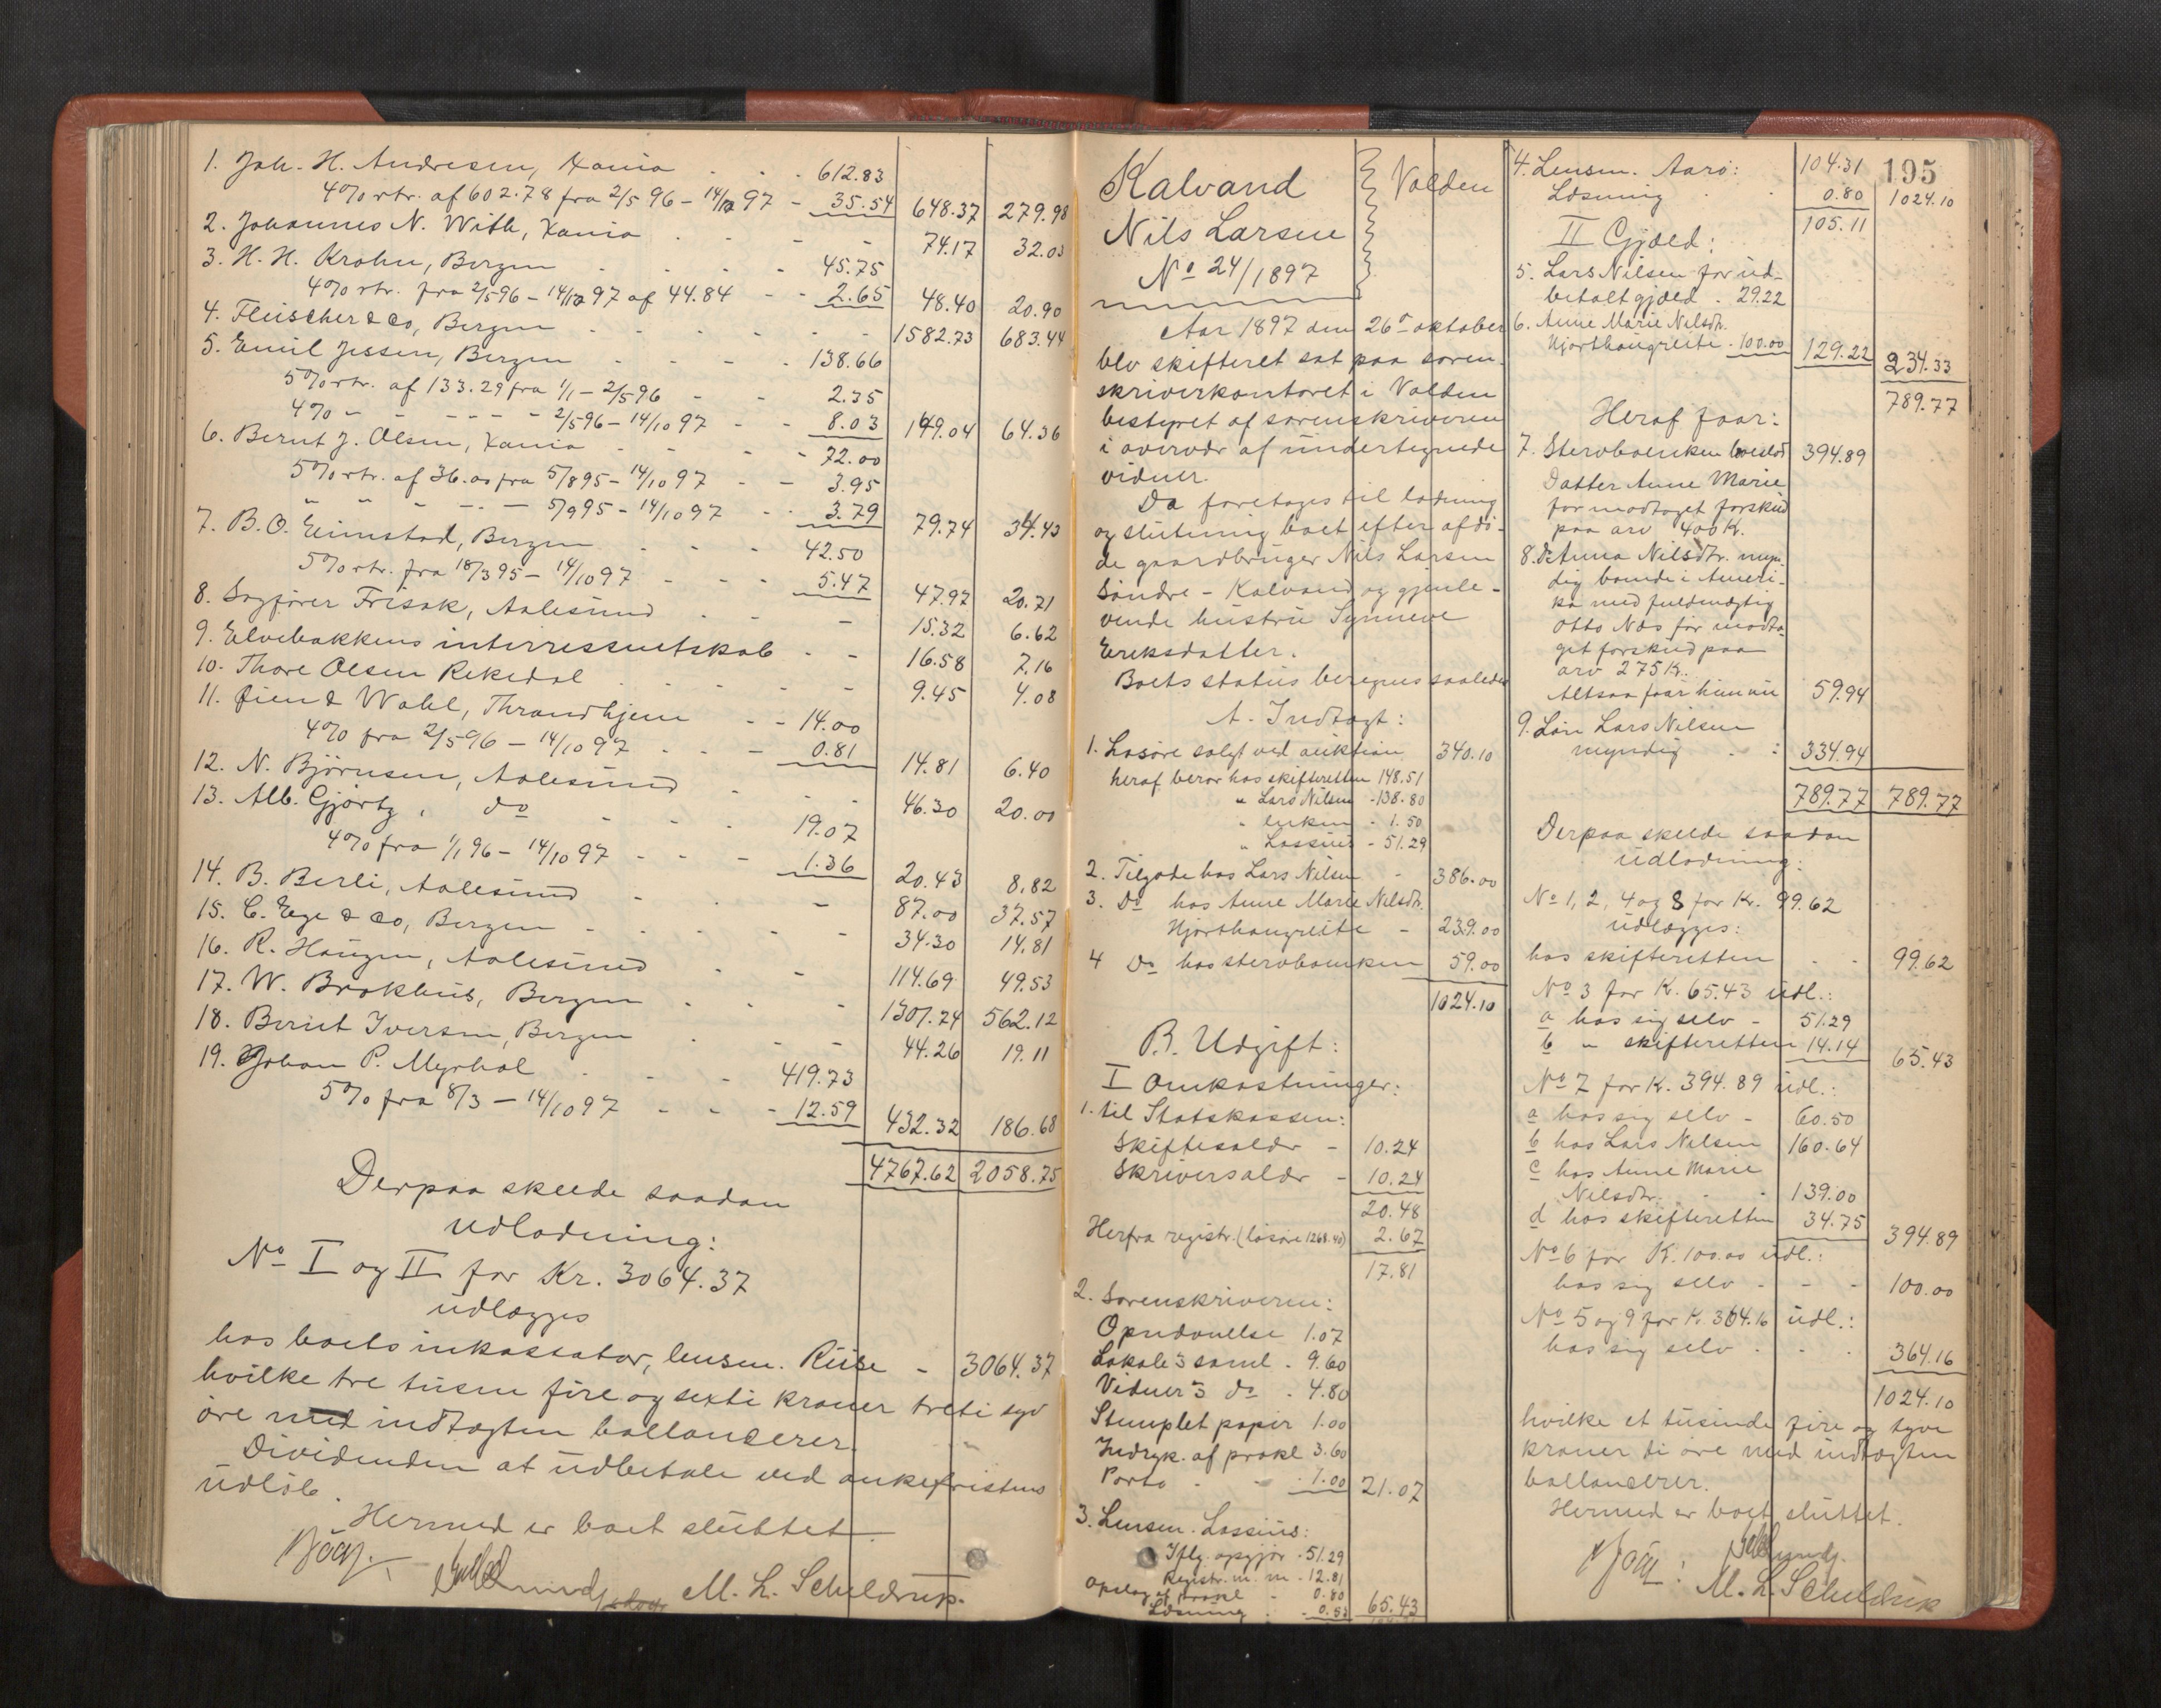 1. Joh. H. Andresen, Xania . . . 612.83
4% rtr. af 602.78 fra 2/5 96 – 14/10 97 - 35.54 648.37 279.98
2. Johannes N. With, Xania . . - - 74.17 32.03
3. H. H. Krohn, Bergen . . . - 45.75
4% rtr. fra 2/5 96 – 14/10 97 af 44.84 - - 2.65 48.40 20.90
4. Fleischer & Co, Bergen . . . - - - 1582.73 683.44
5. Emil Jessen, Bergen - - - . 138.66
5% rtr. af 133.29 fra 1/1 – 2/5 96 - - 2.35
4% " - - - - - 2/5 96 – 14/10 97 - - 8.03 149.04 64.36
6. Bernt J. Olsen, Xania . . - - 72.00
5% rtr. af 36.00 fra 5/8 95 – 14/10 97 - - 3.95
" " " - - – 5/9 95 – 14/10 97 - - 3.79 79.74 34.43
7. B. O. Eimstad, Bergen . . - 42.50
5% rtr. fra 18/3 95 – 14/10 97 - - - 5.47 47.97 20.71
8. Sagfører Frisak, Aalesund . . - 15.32 6.62
9. Elvebakkens interressentskab . - 16.58 7.16
10. Thore Olsen Rekedal . . . - - 9.45 4.08
11. Øien & Wahl, Thrandhjem - - 14.00
4% fra 2/5 96 – 14/10 97 . . - 0.81 14.81 6.40
12. N. Björnsen, Aalesund - . - 46.30 20.00
13. Alb. Gjørtz, do - - . 19.07
4% fra 1/1 96 – 14/10 97 - - - 1.36 20.43 8.82
14. B. Berli, Aalesund . . - 87.00 37.57
15. C. Ege & Co, Bergen - . . . - 34.30 14.81
16. R. Haugen, Aalesund . . - 114.69 49.53
17. W. Brokhus, Bergen . . - 1301.74 562.12
18. Berut Iversen, Bergen . - - 44.26 19.11
19. Johan P. Myrhol . . - 419.73
5% fra 8/3 – 14/10 97 - - - 12.59 432.32 186.68
4767.62 2058.75
Derpaa skeede saadan
udlodning:
No I og II for Kr. 3064.37
udlægges
hos boets inkassator, lensm. Riise - 3064.37
hvilke tre tusen fire og sexti kroner treti syv
øre med indtægten ballancerer.
Dividenden at udbetale ved ankefristens
udløb.
Hermed er boet sluttet
M. L. Scheldrup.
Kalvand
Nils Larsen
No 24/1897
Volden
Aar 1897 den 26de oktober
blev skifteret sat paa soren-
skriverkontoret i Volden
bestyret af sorenskriveren
i overvær af undertegnede
vidner.
Da foretoges til lodning
og slutning boet efter afdø-
de gaardbruger Nils Larsen
Søndre-Kalvand og gjenle-
vende hustru Synneve
Eriksdatter.
Boets status beregnes saaledes
A. Indtægt:
1. Løsøre solgt ved auktion 340.10
heraf beror hos skifteretten 148.51
" Lars Nilsen - 138.80
" enken - 1.50
" Lassius - 51.29
2. Tilgode hos Lars Nilsen - 386.00
3. Do hos Anne Marie Nilsdtr.
Hjorthaugreite - 239.00
4 Do hos stervboenken 59.00
1024.10
B. Udgift:
I Omkostninger:
1. til Statskassen:
Skiftesaldr - 10.24
Skriversaldr - 10.24
20.48
Herfra registr. (løsøre 1268.40) 2.67
17.81
2. Sorenskriveren:
Opnævnelse 1.07
Lokale 3 saml. 9.60
Vidner 3 do . 4.80
Stemplet papir 1.00
Indryk. af prokl 3.60
Porto . - . 1.00 21.07
3. Lensm. Lassius:
Iflg. opgjør . 51.29
Registr. m. m - 12.81
Opslag af prokl - 0.80
Løsning . - 0.53 65.43
195
4. Lensm. Aarø: 104.31
Løsning . . 0.80 1024.10
105.11
II Gjæld:
5. Lars Nilsen for ud-
betalt gjæld . 29.22
6. Anne Marie Nilsdtr.
Hjorthaugreite . 100.00 129.22 234.33
789.77
Heraf faar:
7. Stervboenken boeslod 394.89
Datter Anne Marie
har modtaget forskud
paa arv 400 Kr.
8. Do Anna Nilsdtr. myn-
dig boende i Ameri-
ka med fuldmægtig
Otto Næs har modta-
get forskud paa
arv 275 K.
Altsaa faar hun nu 59.94
9. Søn Lars Nilsen
myndig . . : 334.94
789.77 789.77
Derpaa skeede saadan
udlodning:
No 1, 2, 4 og 8 for Kr. 99.62
udlægges:
hos skifteretten . - 99.62
No 3 for K. 65.43 udl.:
a hos sig selv - 51.29
b " skifteretten 14.14 65.43
No 7 for K. 394.89 udl.:
a hos sig selv - 60.50
b hos Lars Nilsen 160.64
c hos Anne Marie
Nilsdtr. . - 139.00
d hos skifteretten 34.75 394.89
No 6 for K. 100.00 udl.:
hos sig selv - - - 100.00
No 5 og 9 for K. 364.16 udl.:
hos sig selv . . . 364.16
1024.10
hvilke et tusinde fire og tyve
kroner ti øre med indtægten
ballancerer.
Hermed er boet sluttet.
M. L. Scheldrup